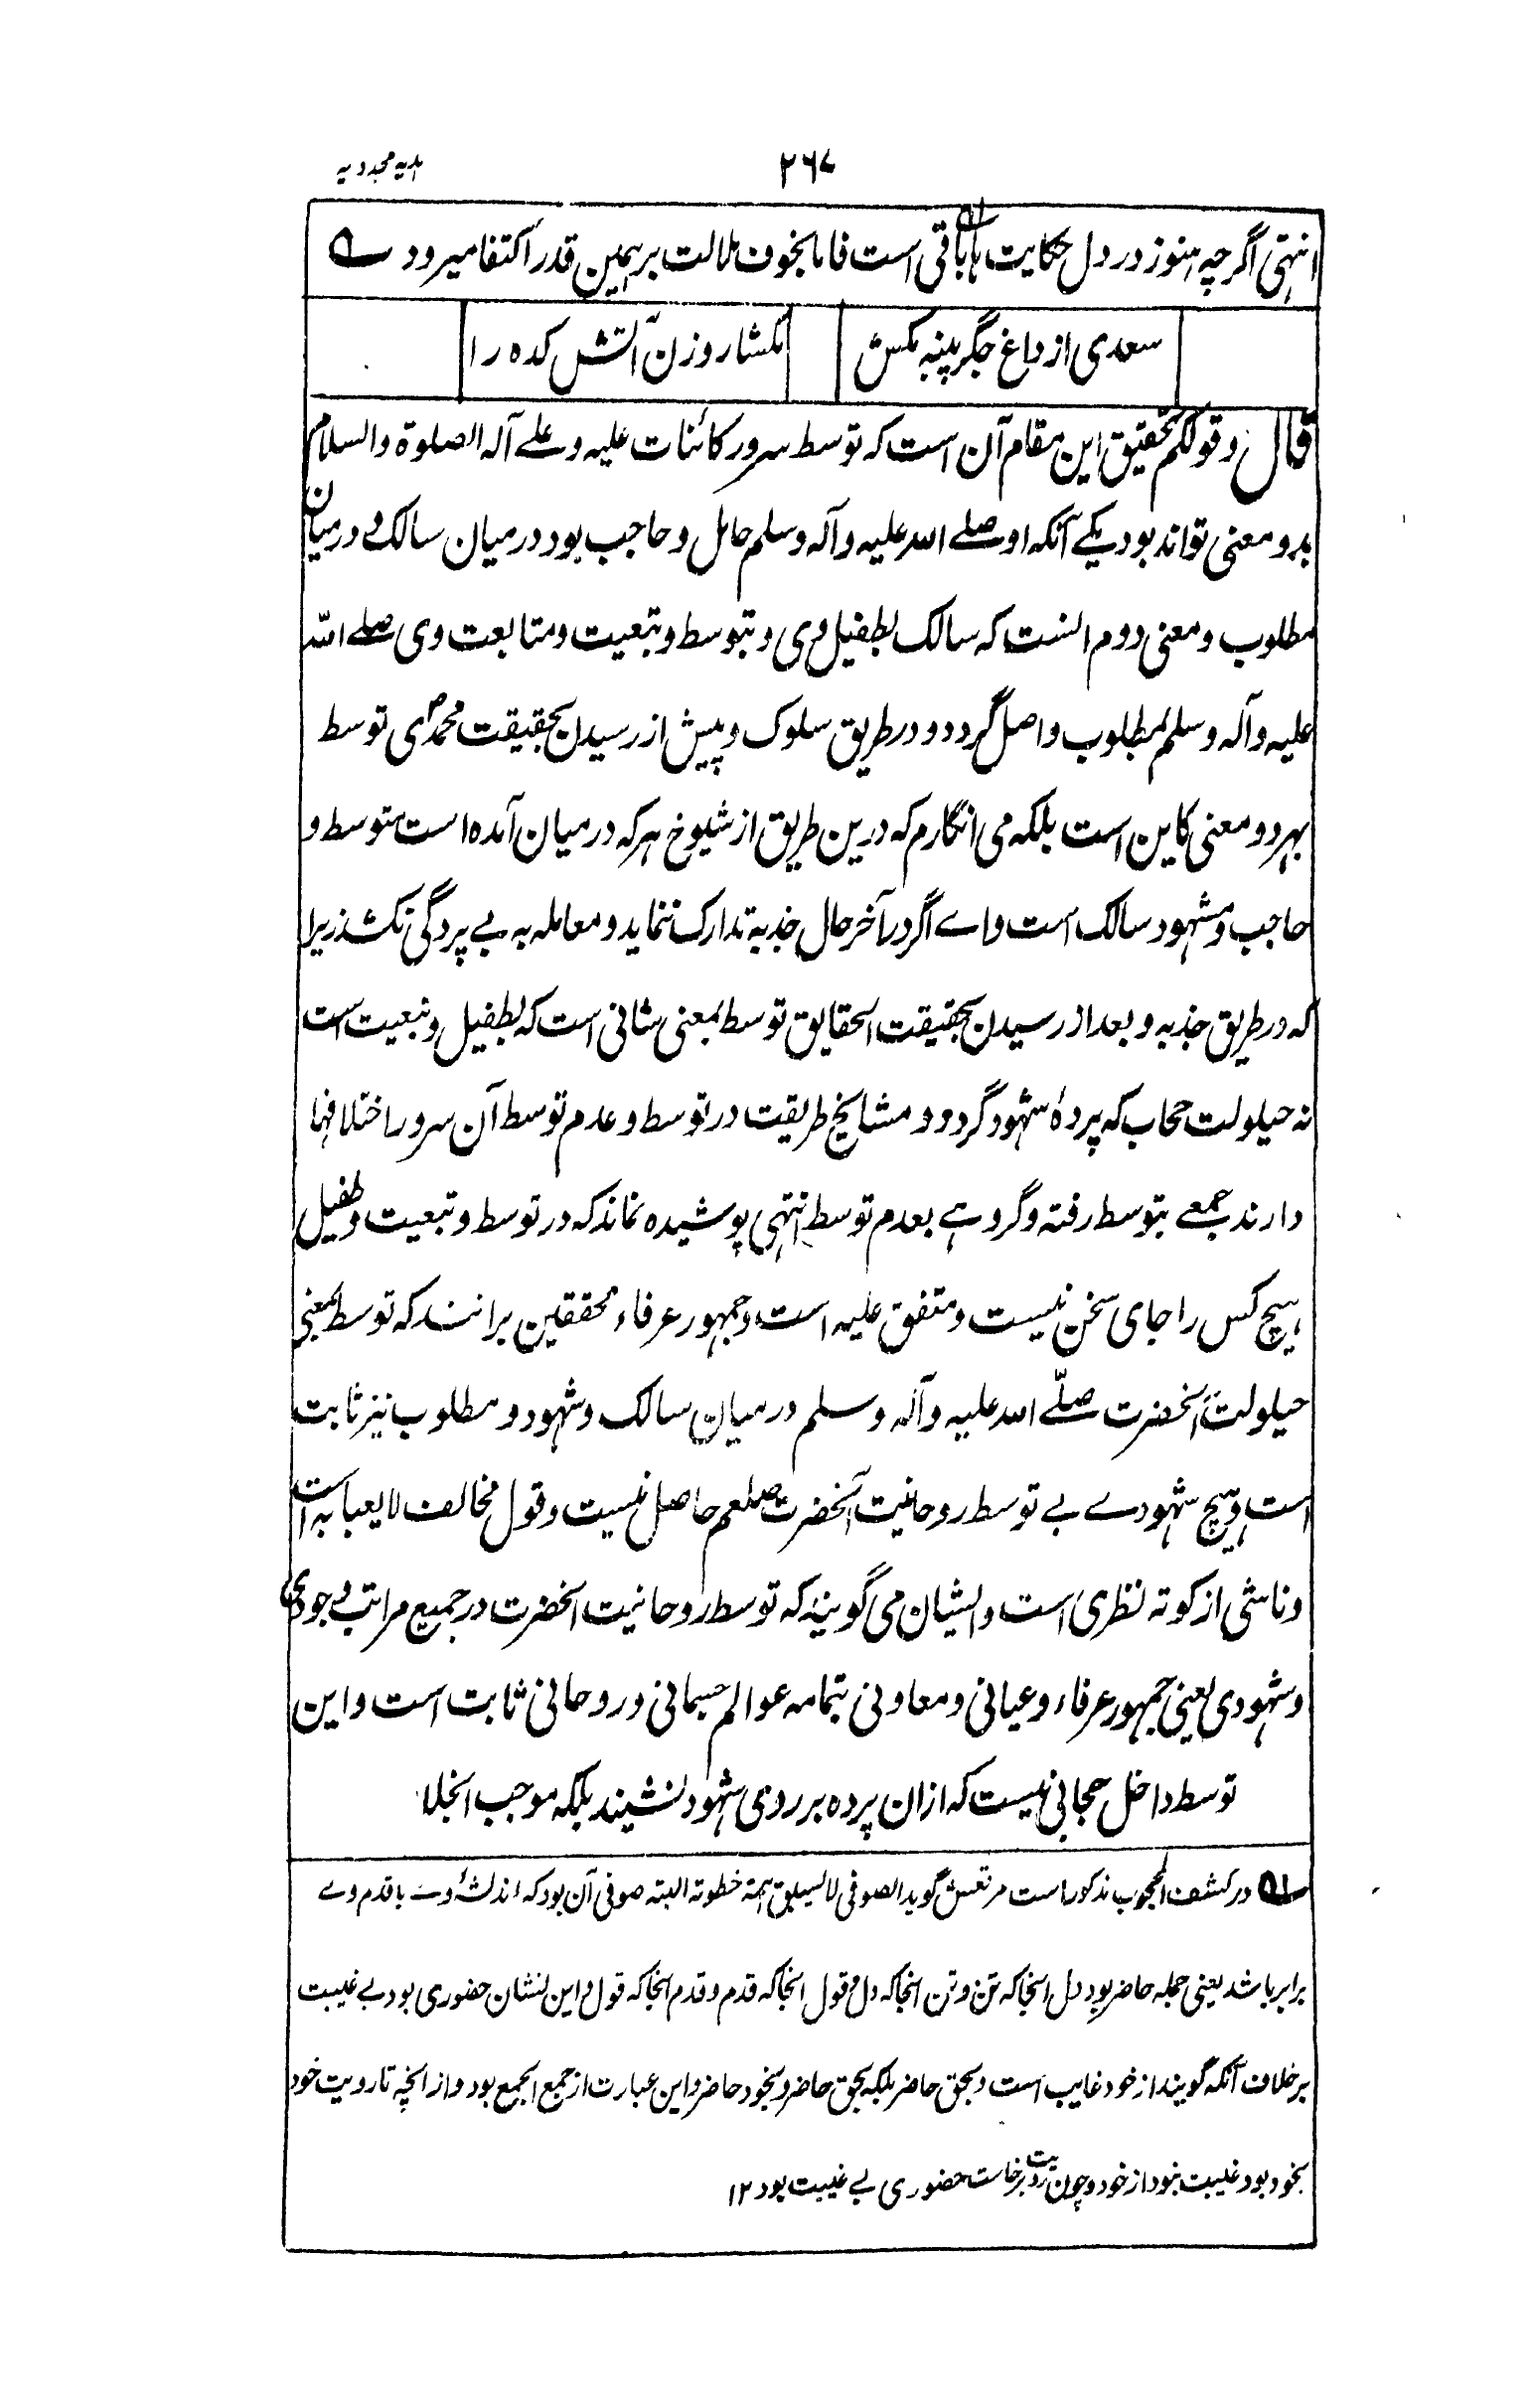 ۲۶۷
ہدیہ مجددیہ
انتہی اگرچہ ہنوز در دل حکایت ہا باقی است فاما بخوف ملالت بر ہمین قدر اکتفا میرود
سعدی از داغ جگر پنبہ مکش
مکشا روزن آتش کدہ را
قال وقولکم تحقیق این مقام آن است کہ توسط سرور کائنات علیہ وعلے آلہ الصلوۃ والسلام
بدو معنی تواند بود یکے آنکہ او صلے اللہ علیہ وآلہ وسلم حائل و حاجب بود درمیان سالک و درمیان
مطلوب ومعنی دوم آنست کہ سالک بطفیل وی و بتوسط و تبعیت ومتابعت وی صلے اللہ
علیہ وآلہ وسلم بمطلوب واصل گردد و در طریق سلوک و پیش از رسیدن بحقیقت محمدی توسط
بہر دو معنی کاین است بلکہ می انگارم کہ درین طریق از شیوخ ہر کہ درمیان آمدہ است متوسط و
حاجب و مشہود سالک است واے اگر در آخر حال جذبہ تدارک ننماید و معاملہ بہ بے پردگی نکشد زیرا
کہ در طریق جذبہ و بعد از رسیدن بحقیقت الحقایق توسط بمعنی ثانی است کہ بطفیل و تبعیت است
نہ حیلولت حجاب کہ پردۂ شہود گردد و مشایخ طریقت در توسط و عدم توسط آن سرور اختلافہا
دارند جمعے بتوسط رفتہ و گروہے بعدم توسط انتہی پوشیدہ نماند کہ در توسط و تبعیت و طفیل
ہیچ کس را جای سخن نیست و متفق علیہ است وجمہور عرفاء محققین برانند کہ توسط بمعنی
حیلولت آنحضرت صلّے اللہ علیہ وآلہ وسلم درمیان سالک و شہود و مطلوب نیز ثابت
است وہیچ شہودے بے توسط روحانیت آنحضرت صلعم حاصل نیست وقول مخالف لا یعبأ بہ است
وناشی از کوتہ نظری است وایشان می گویند کہ توسط روحانیت آنحضرت در جمیع مراتب وجودی
و شہودی یعنی جمہور عرفاء وعیانی ومعاونی بتمامہ عوالم جسمانی و روحانی ثابت است واین
توسط داخل حجابی نیست کہ ازان پردہ بر روی شہود نشیند بلکہ موجب انجلا
در کشف المحجوب مذکور است مرتعش گوید الصوفی لا یسبق ہمتہ خطوتہ البتہ صوفی آن بود کہ اندیشۂ وے با قدم وے
برابر باشد یعنی جملہ حاضر بود دل آنجا کہ تن و تن آنجا کہ دل و قول آنجا کہ قدم و قدم آنجا کہ قول و این نشان حضوری بود بے غیبت
بر خلاف آنکہ گویند از خود غایب است و بحق حاضر بلکہ بحق حاضر و بخود حاضر و این عبارت از جمع الجمع بود و از آنچہ تا رویت خود
بخود بود غیبت نبود از خود و چون رویت برخاست حضوری بے غیبت بود ۱۲